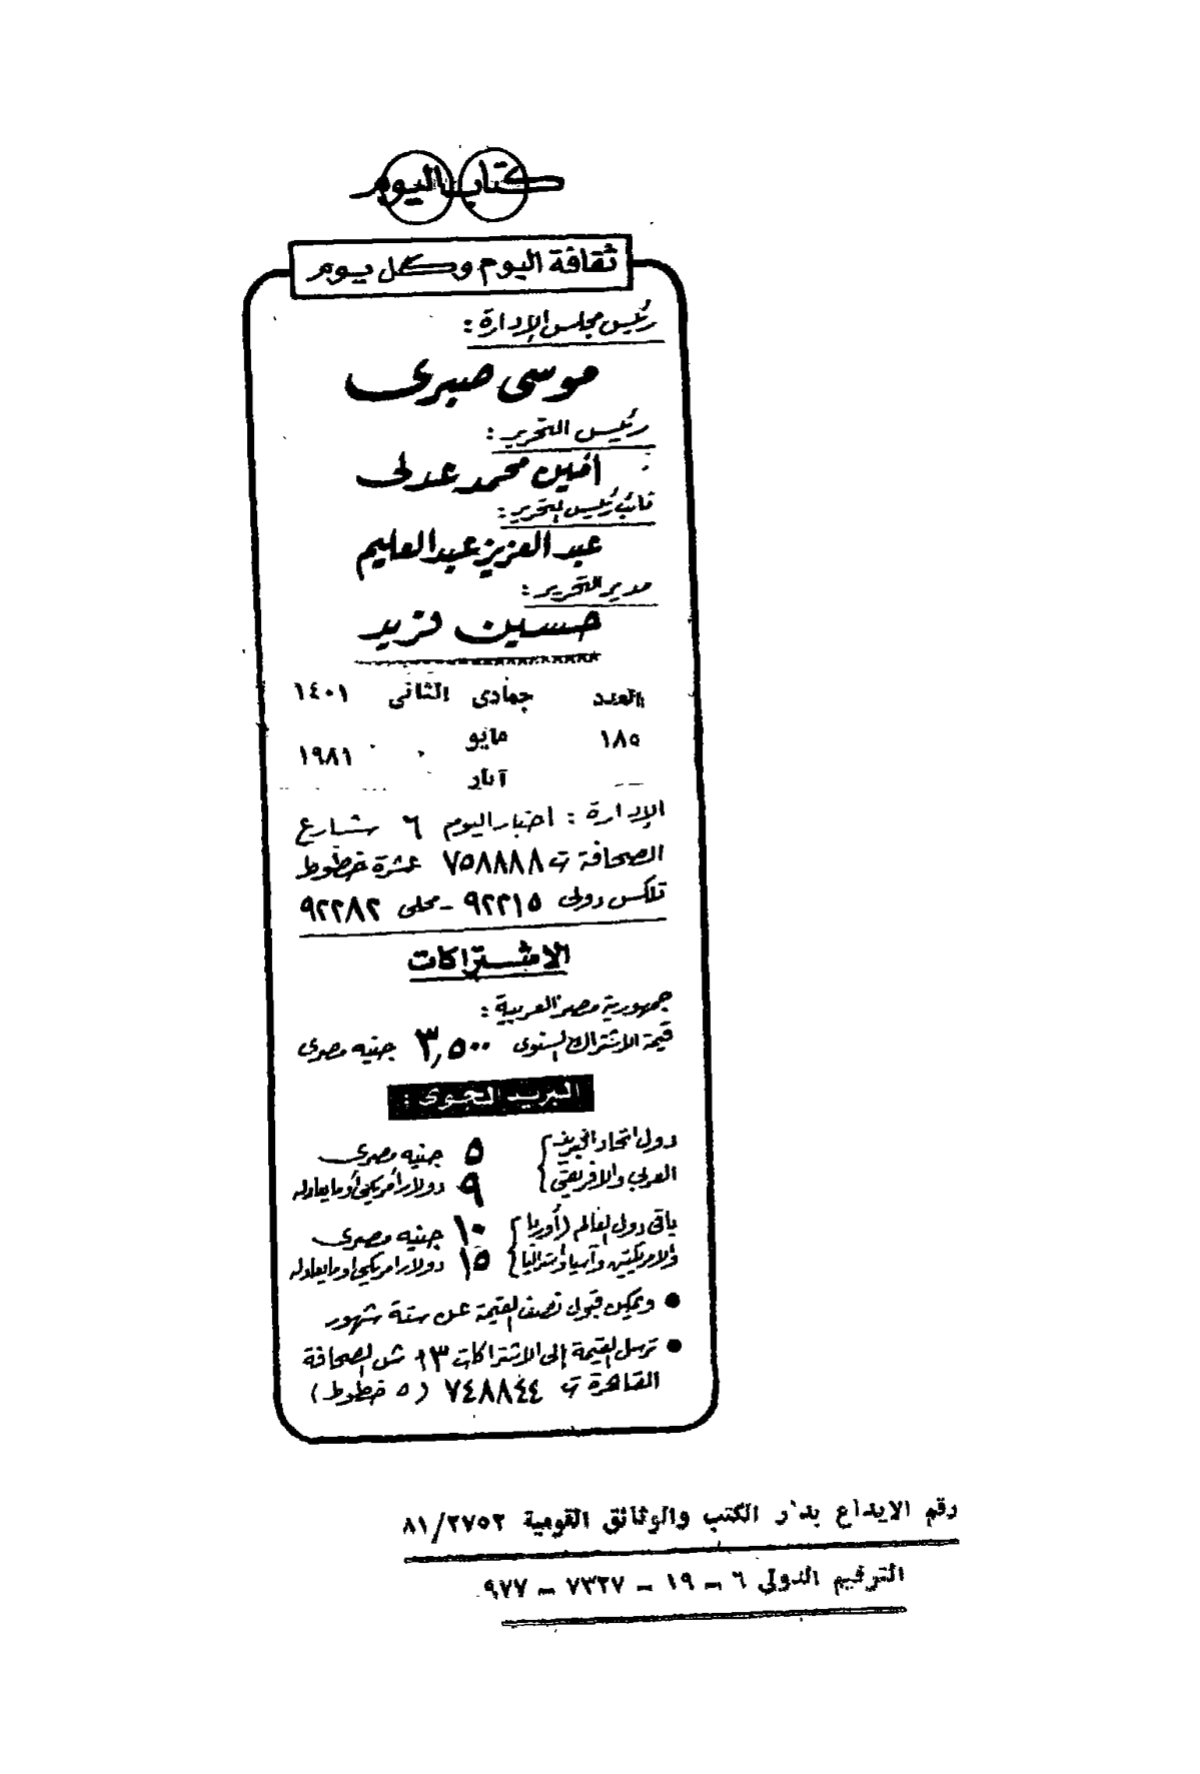 كتاب اليوم
ثقافة اليوم وكل يوم
رئيس مجلس الإدارة :
موسى صبرى
رئيس التحرير :
أمين محمد عدلى
نائب رئيس التحرير :
عبد العزيز عبد العليم
مدير التحرير :
حسين فريد
العدد جمادى الثانى ١٤٠١
١٨٥ مايو ١٩٨١
آيار
الإدارة : اخبار اليوم ٦ شارع
الصحافة ت ٧٥٨٨٨٨ عشرة خطوط
تلكس دولى ٩٢٢١٥ - محلى ٩٢٢٨٢
الاشتراكات
جمهورية مصر العربية :
قيمة الاشتراك السنوى ٣,٥٠٠ جنيه مصرى
البريد الجوى :
دول اتحاد البريد { ٥ جنيه مصرى
العربى والافريقى { ٩ دولار أمريكى أو ما يعادله
باقى دول العالم (أوربا { ١٠ جنيه مصرى
والامريكتين وآسيا وأستراليا { ١٥ دولار امريكى او ما يعادله
● ويمكن قبول نصف القيمة عن ستة شهور
● ترسل القيمة إلى الاشتراكات ٣ ش الصحافة
القاهرة ت ٧٤٨٨٤٤ (٥ خطوط)
رقم الايداع بدار الكتب والوثائق القومية ٨١/٢٧٥٢
الترقيم الدولى ٦ - ١٩ - ٧٣٢٧ - ٩٧٧